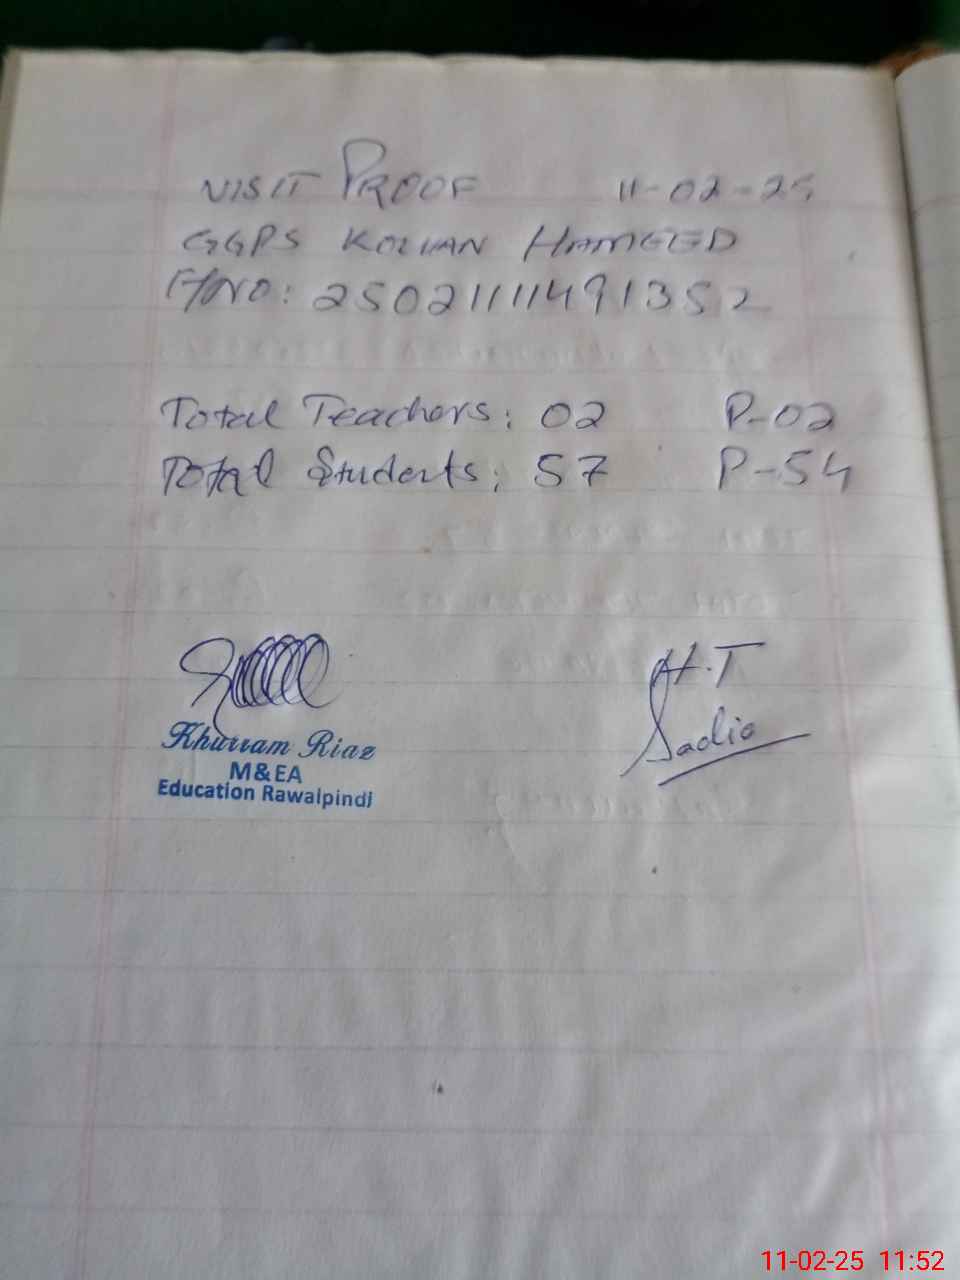 VISIT PROOF 11-02-25
GGPS KOLIAN HAMEED
A/NO: 25021111491352
Total Teachers: 02 P-02
Total Students: 57 P-54
H.T
Sadia
Khurram Riaz
M&EA
Education Rawalpindi
11-02-25 11:52